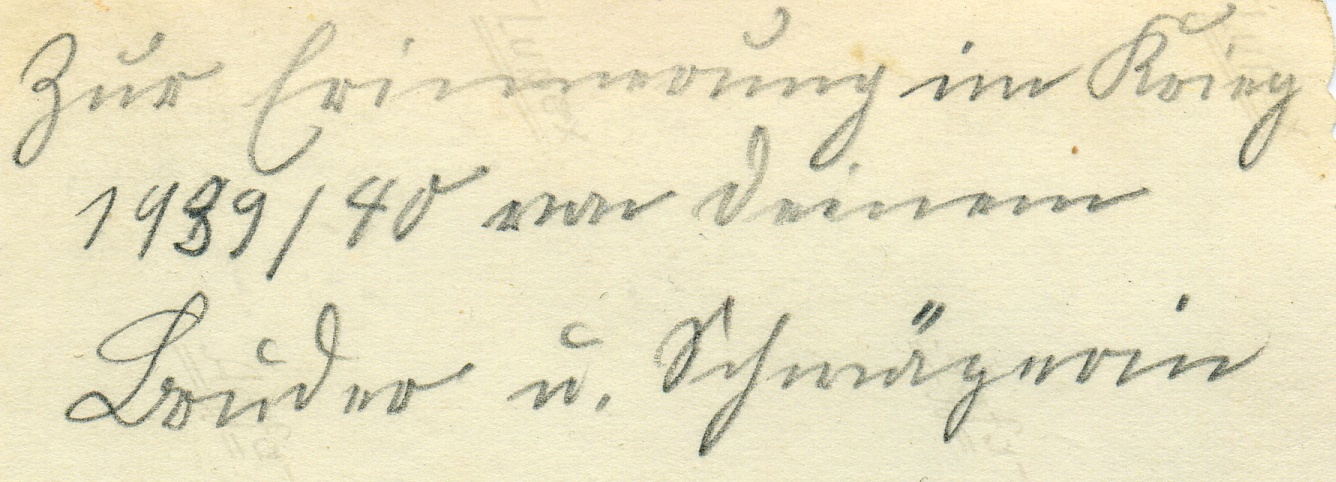 Zur Erinnerung im Krieg
1939/40 von Deinem
Bruder u. Schwägerin